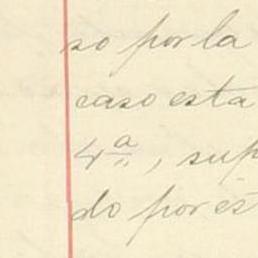 so por la
caso esta
4ª, sup
do por es